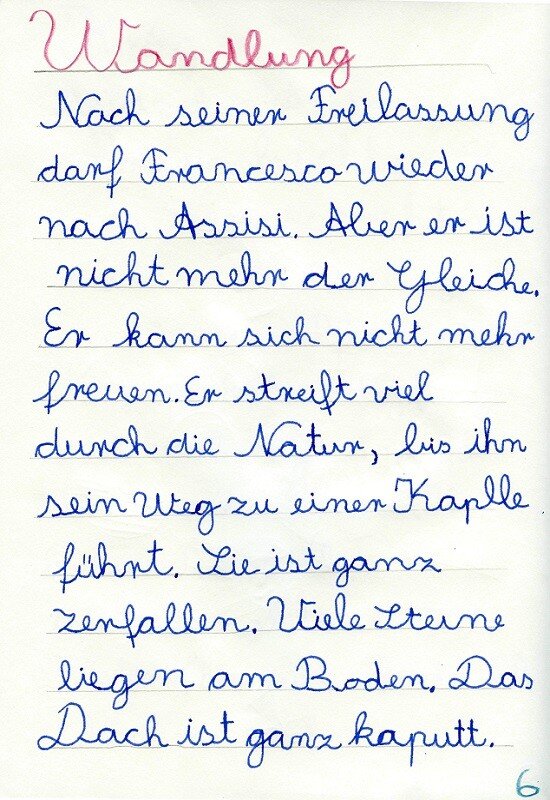 Wandlung
Nach seiner Freilassung
darf Francesco wieder
nach Assisi. Aber er ist
nicht mehr der Gleiche.
Er kann sich nicht mehr
freuen. Er streift viel
durch die Natur, bis ihn
sein Weg zu einer Kaplle
führt. Sie ist ganz
zerfallen. Viele Steine
liegen am Boden. Das
Dach ist ganz kaputt.
6